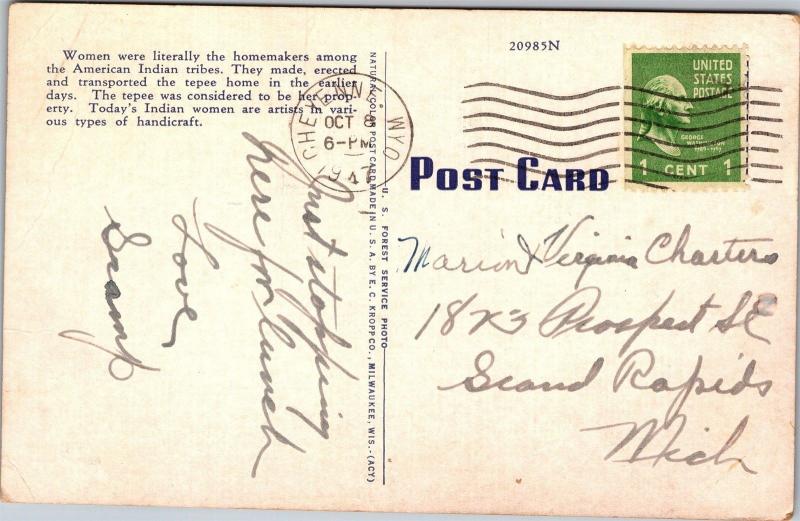 Women were literally the homemakers among
the American Indian tribes. They made, erected
and transported the tepee home in the earlier
days. The tepee was considered to be her prop-
erty. Today's Indian women are artists in vari-
ous types of handicraft.
Just stopping
here for lunch
Love
Scamp
NATURAL COLOR POST CARD MADE IN U. S. A. BY E. C. KROPP CO., MILWAUKEE, WIS.-(ACY)
U. S. FOREST SERVICE PHOTO
CHEYENNE WYO
OCT 8
6-PM
20985N
UNITED
STATES
POSTAGE
GEORGE
WASHINGTON
1789-1797
1 CENT 1
POST CARD
Marion & Virginia Charters
Prospect SE
Grand Rapids
Mich